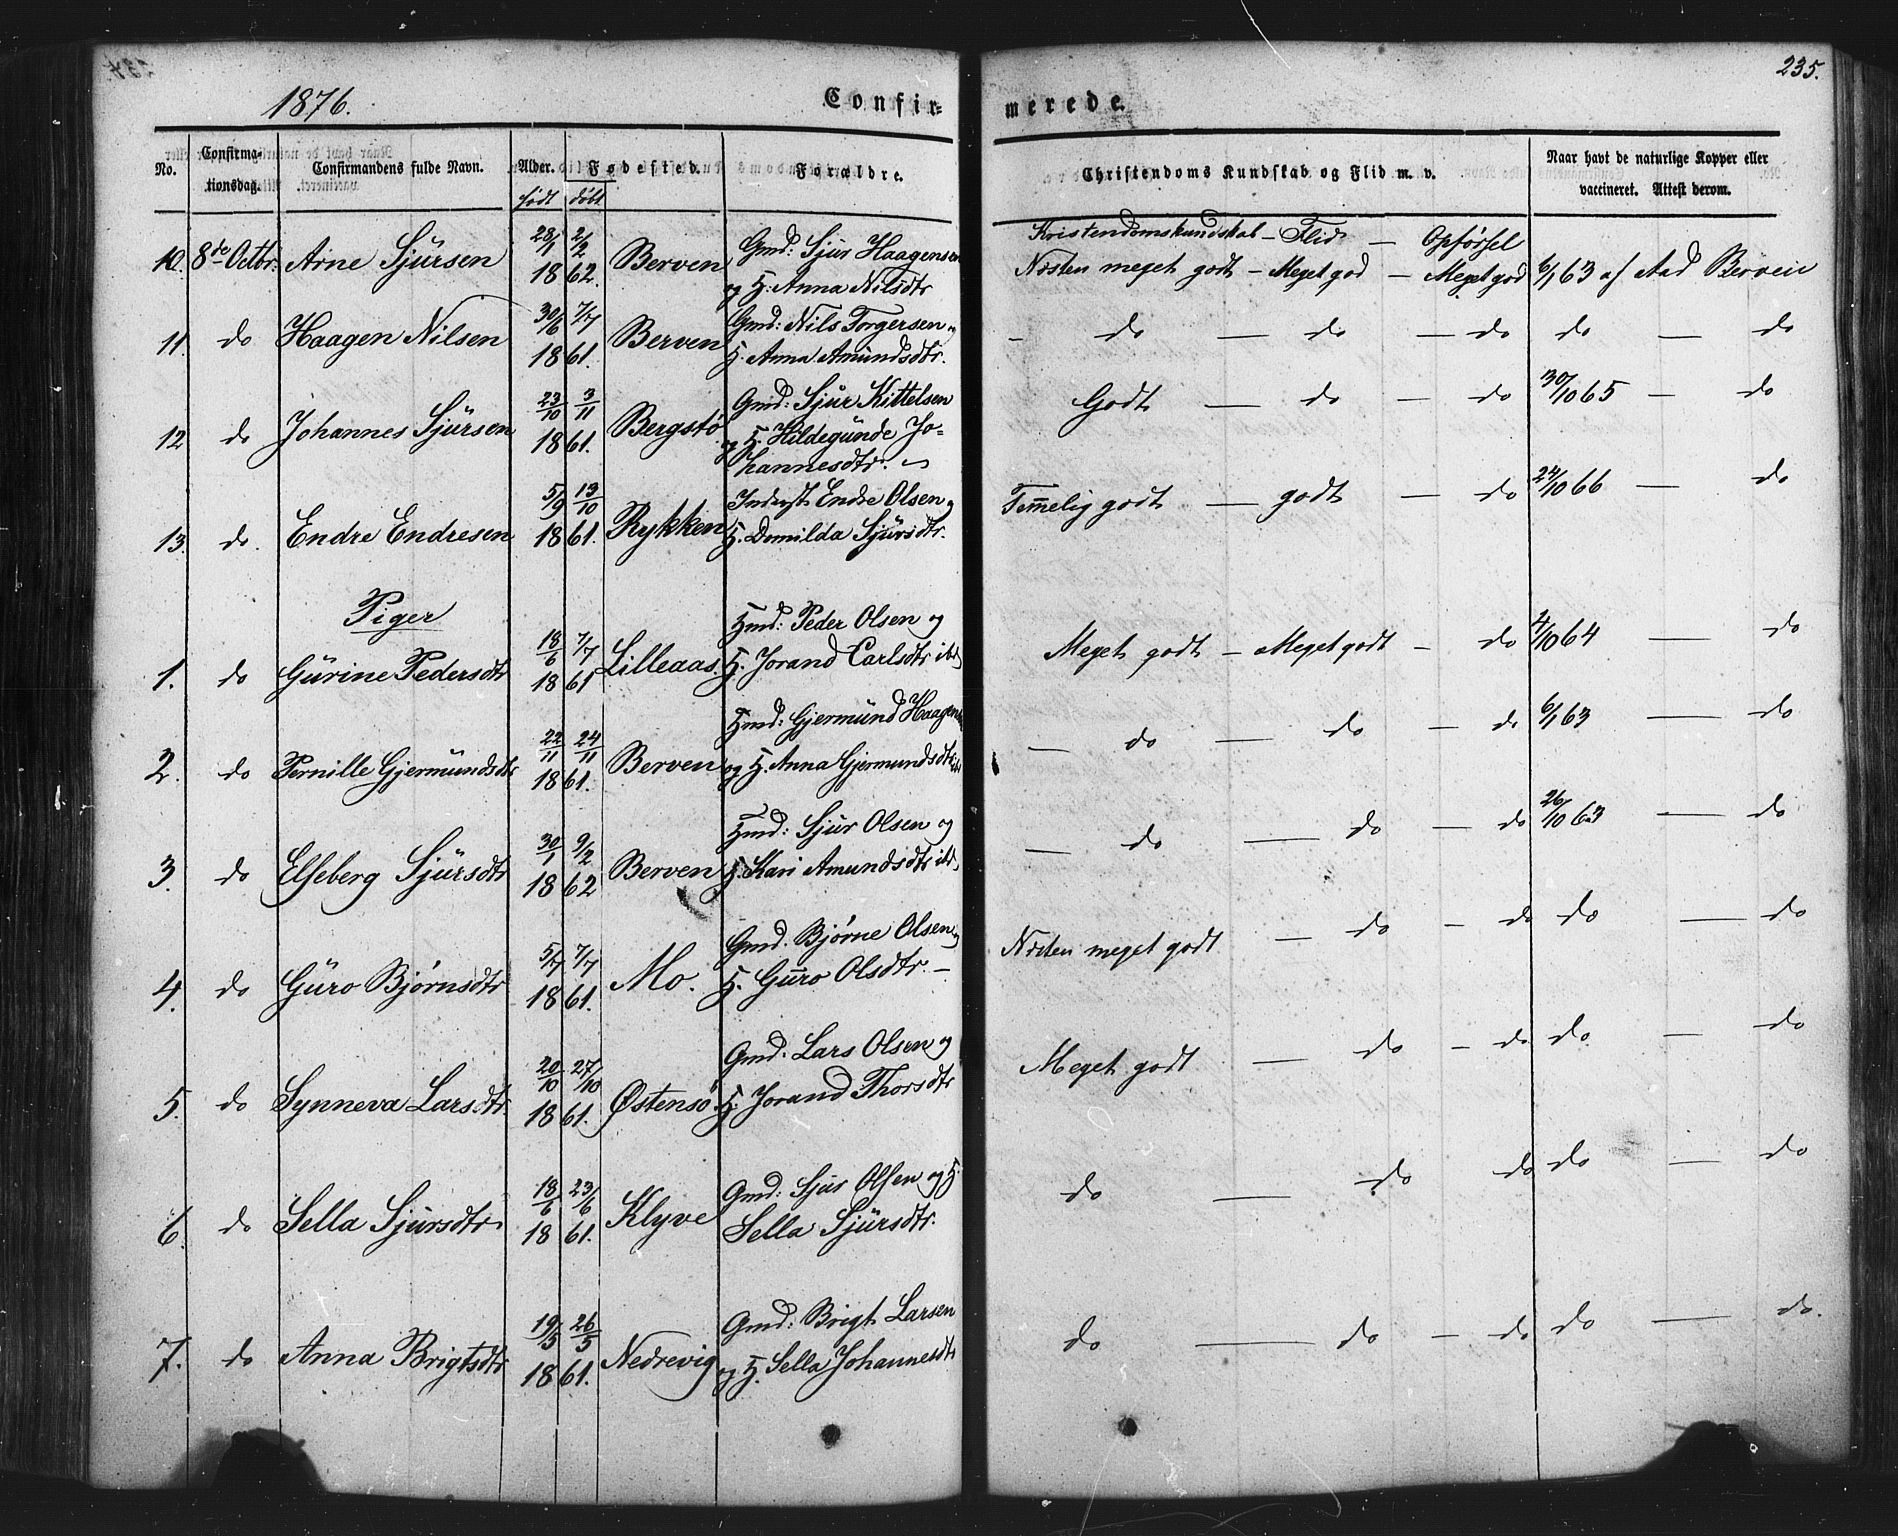 235.
1876.
Confir-
merede.
No. Confirma-tionsdag. Confirmandens fulde Navn. Alder. Fødested. Forældre. Christendoms Kundskab og Flid m. v. Naar havt de naturlige Kopper eller vaccineret. Attest derom.
født døbt
Kristendomskundskab - Flid - Opførsel
10. 8de Octbr. Arne Sjürsen 28/1 2/2 1862. Berven Gmd: Sjur Haagensen Næsten meget godt - Meget god - Meget god 6/1 63 af Aad Berven
og H: Anna Nilsdtr
11. do Haagen Nilsen 30/6 7/7 1861. Berven Gmd: Nils Torgersen og - do - do - do do - do
H. Anna Amündsdtr.
12 do Johannes Sjürsen 23/10 3/11 1861. Bergstö Gmd: Sjur Kittelsen Godt - do - do 30/10 65 - do
og H. Hildegünde Jo-
hannesdtr. -
13. do. Endre Endresen 5/9 13/10 1861. Rykken Inderst Endre Olsen og Temmelig godt - godt - do 24/10 66 - do
H. Domilda Sjürsdtr.
Piger
1. do Gürine Pedersdtr 18/6 7/7 1861 Lilleaas. Hmd: Peder Olsen og Meget godt - Meget godt - do 4/10 64 - do
H. Jorand Carlsdtr ibd
2. do Pernille Gjermündsdtr 22/11 24/11 1861. Berven Hmd: Gjermünd Haagens - do - do - do 6/1 63 - do
og H. Anna Gjermundsdtr
3. do Elseberg Sjürsdtr 30/1 9/2 1862 Berven Hmd: Sjur Olsen og - do - do - do 26/10 63 - do
H. Kari Amundsdtr ibd.
4. do Güro Bjørnsdtr 5/7 7/7 1861. Mo. Gmd. Bjørne Olsen og Næsten meget godt - do - do do - do
H. Guro Olsdtr. -
5. do Synneva Larsdtr. 20/10 27/10 1861. Østensö Gmd. Lars Olsen og Meget godt - do - do do - do
H. Jorand Thorsdtr
6. do Sella Sjürsdtr 18/6 23/6 1861. Klyve Gmd: Sjur Olsen og H. do - do do do - do
Sella Sjürsdtr.
7. do Anna Brigtsdtr 19/5 26/5 1861. Nedrevig Gmd: Brigt Larsen do - do - do do - do.
og H. Sella Johannesdtr